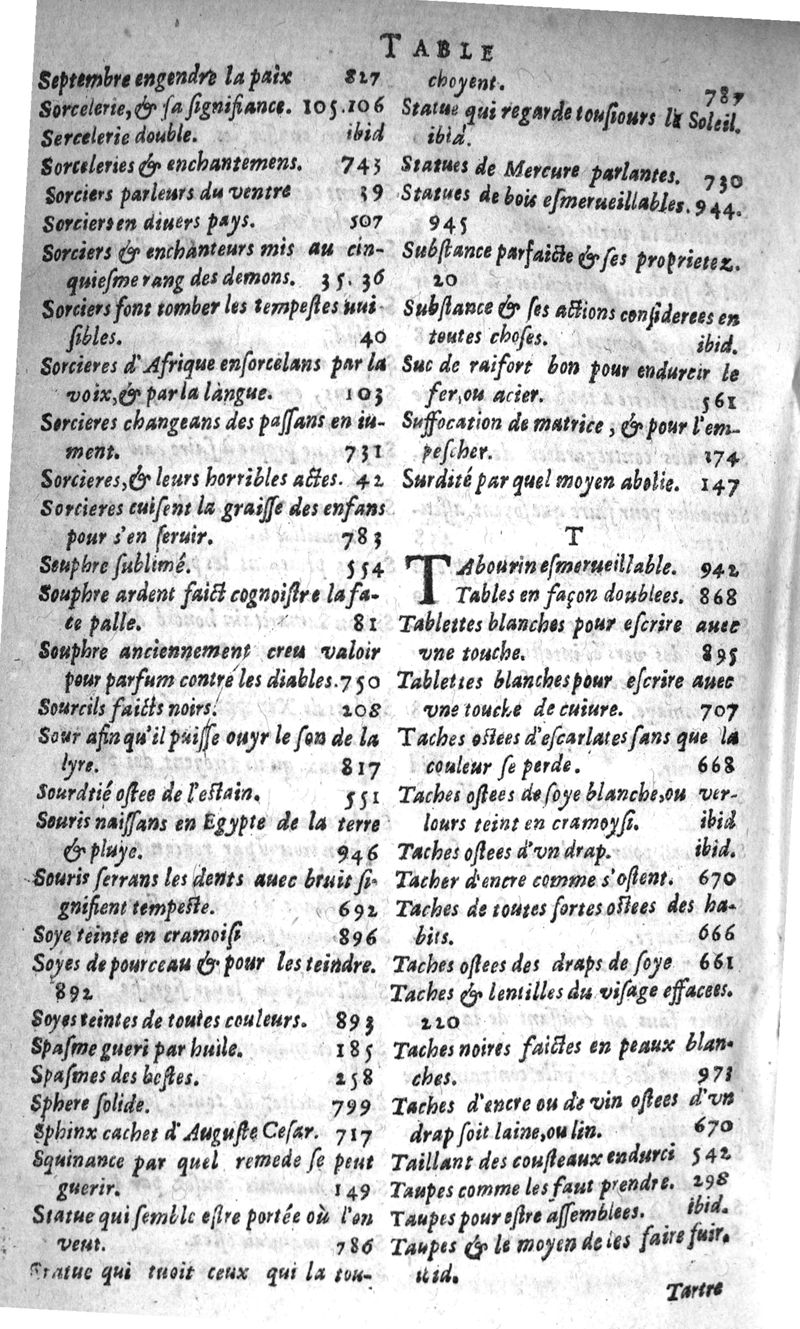 TABLE
Septembre engendre la paix 827
Sorcelerie, & sa signifiance. 105.106
Sercelerie double. ibid
Sorceleries & enchantemens. 743
Sorciers parleurs du ventre 39
Sorciers en diuers pays. 507
Sorciers & enchanteurs mis au cin-
quiesme rang des demons. 35.36
Sorciers font tomber les tempestes nui-
sibles. 40
Sorcieres d'Afrique ensorcelans par la
voix, & par la làngue. 103
Sorcieres changeans des passans en iu-
ment. 731
Sorcieres, & leurs horribles actes. 42
Sorcieres cuisent la graisse des enfans
pour s'en seruir. 783
Seuphre sublimé. 554
Souphre ardent faict cognoistre la fa-
ce palle. 81
Souphre anciennement creu valoir
pour parfum contre les diables. 750
Sourcils faicts noirs. 208
Sour afin qu'il puisse ouyr le son de la
lyre. 817
Sourdtié ostee de l'estain. 551
Souris naissans en Egypte de la terre
& pluye. 946
Souris serrans les dents auec bruit si-
gnifient tempeste. 692
Soye teinte en cramoisi 896
Soyes de pourceau & pour les teindre.
892
Soyes teintes de toutes couleurs. 893
Spasme gueri par huile. 185
Spasmes des bestes. 258
Sphere solide. 799
Sphinx cachet d'Auguste Cesar. 717
Squinance par quel remede se peut
guerir. 149
Statue qui semble estre portée où l'on
veut. 786
Statue qui tuoit ceux qui la tou-
choyent. 787
Statue qui regarde tousiours le Soleil.
ibid.
Statues de Mercure parlantes. 730
Statues de bois esmerueillables. 944.
945
Substance parfaicte & ses proprietez.
20
Substance & ses actions considerees en
toutes choses. ibid.
Suc de raifort bon pour endurcir le
fer, ou acier. 561
Suffocation de matrice, & pour l'em-
pescher. 174
Surdité par quel moyen abolie. 147
T
TAbourin esmerueillable. 942
Tables en façon doublees. 868
Tablettes blanches pour escrire auec
vne touche. 895
Tablettes blanches pour escrire auec
vne touche de cuiure. 707
Taches ostees d'escarlates sans que la
couleur se perde. 668
Taches ostees de soye blanche, ou ver-
lours teint en cramoysi. ibid
Taches ostees d'vn drap. ibid.
Tacher d'encre comme s'ostent. 670
Taches de toutes sortes ostees des ha-
bits. 666
Taches ostees des draps de soye 661
Taches & lentilles du visage effacees.
220
Taches noires faictes en peaux blan-
ches. 973
Taches d'encre ou de vin ostees d'vn
drap soit laine, ou lin. 670
Taillant des cousteaux endurci 542
Taupes comme les faut prendre. 298
Taupes pour estre assemblees. ibid.
Taupes & le moyen de les faire fuir.
ibid.
Tartre